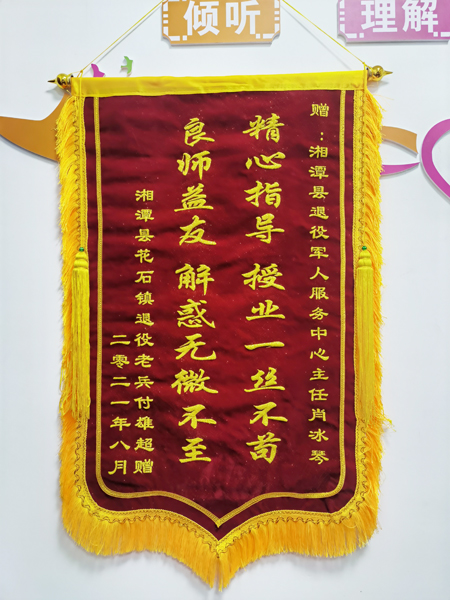 倾听
理解
赠：湘潭县退役军人服务中心主任肖冰琴
精心指导 授业一丝不苟
良师益友 解惑无微不至
湘潭县花石镇退役老兵付雄超赠
二零二一年八月